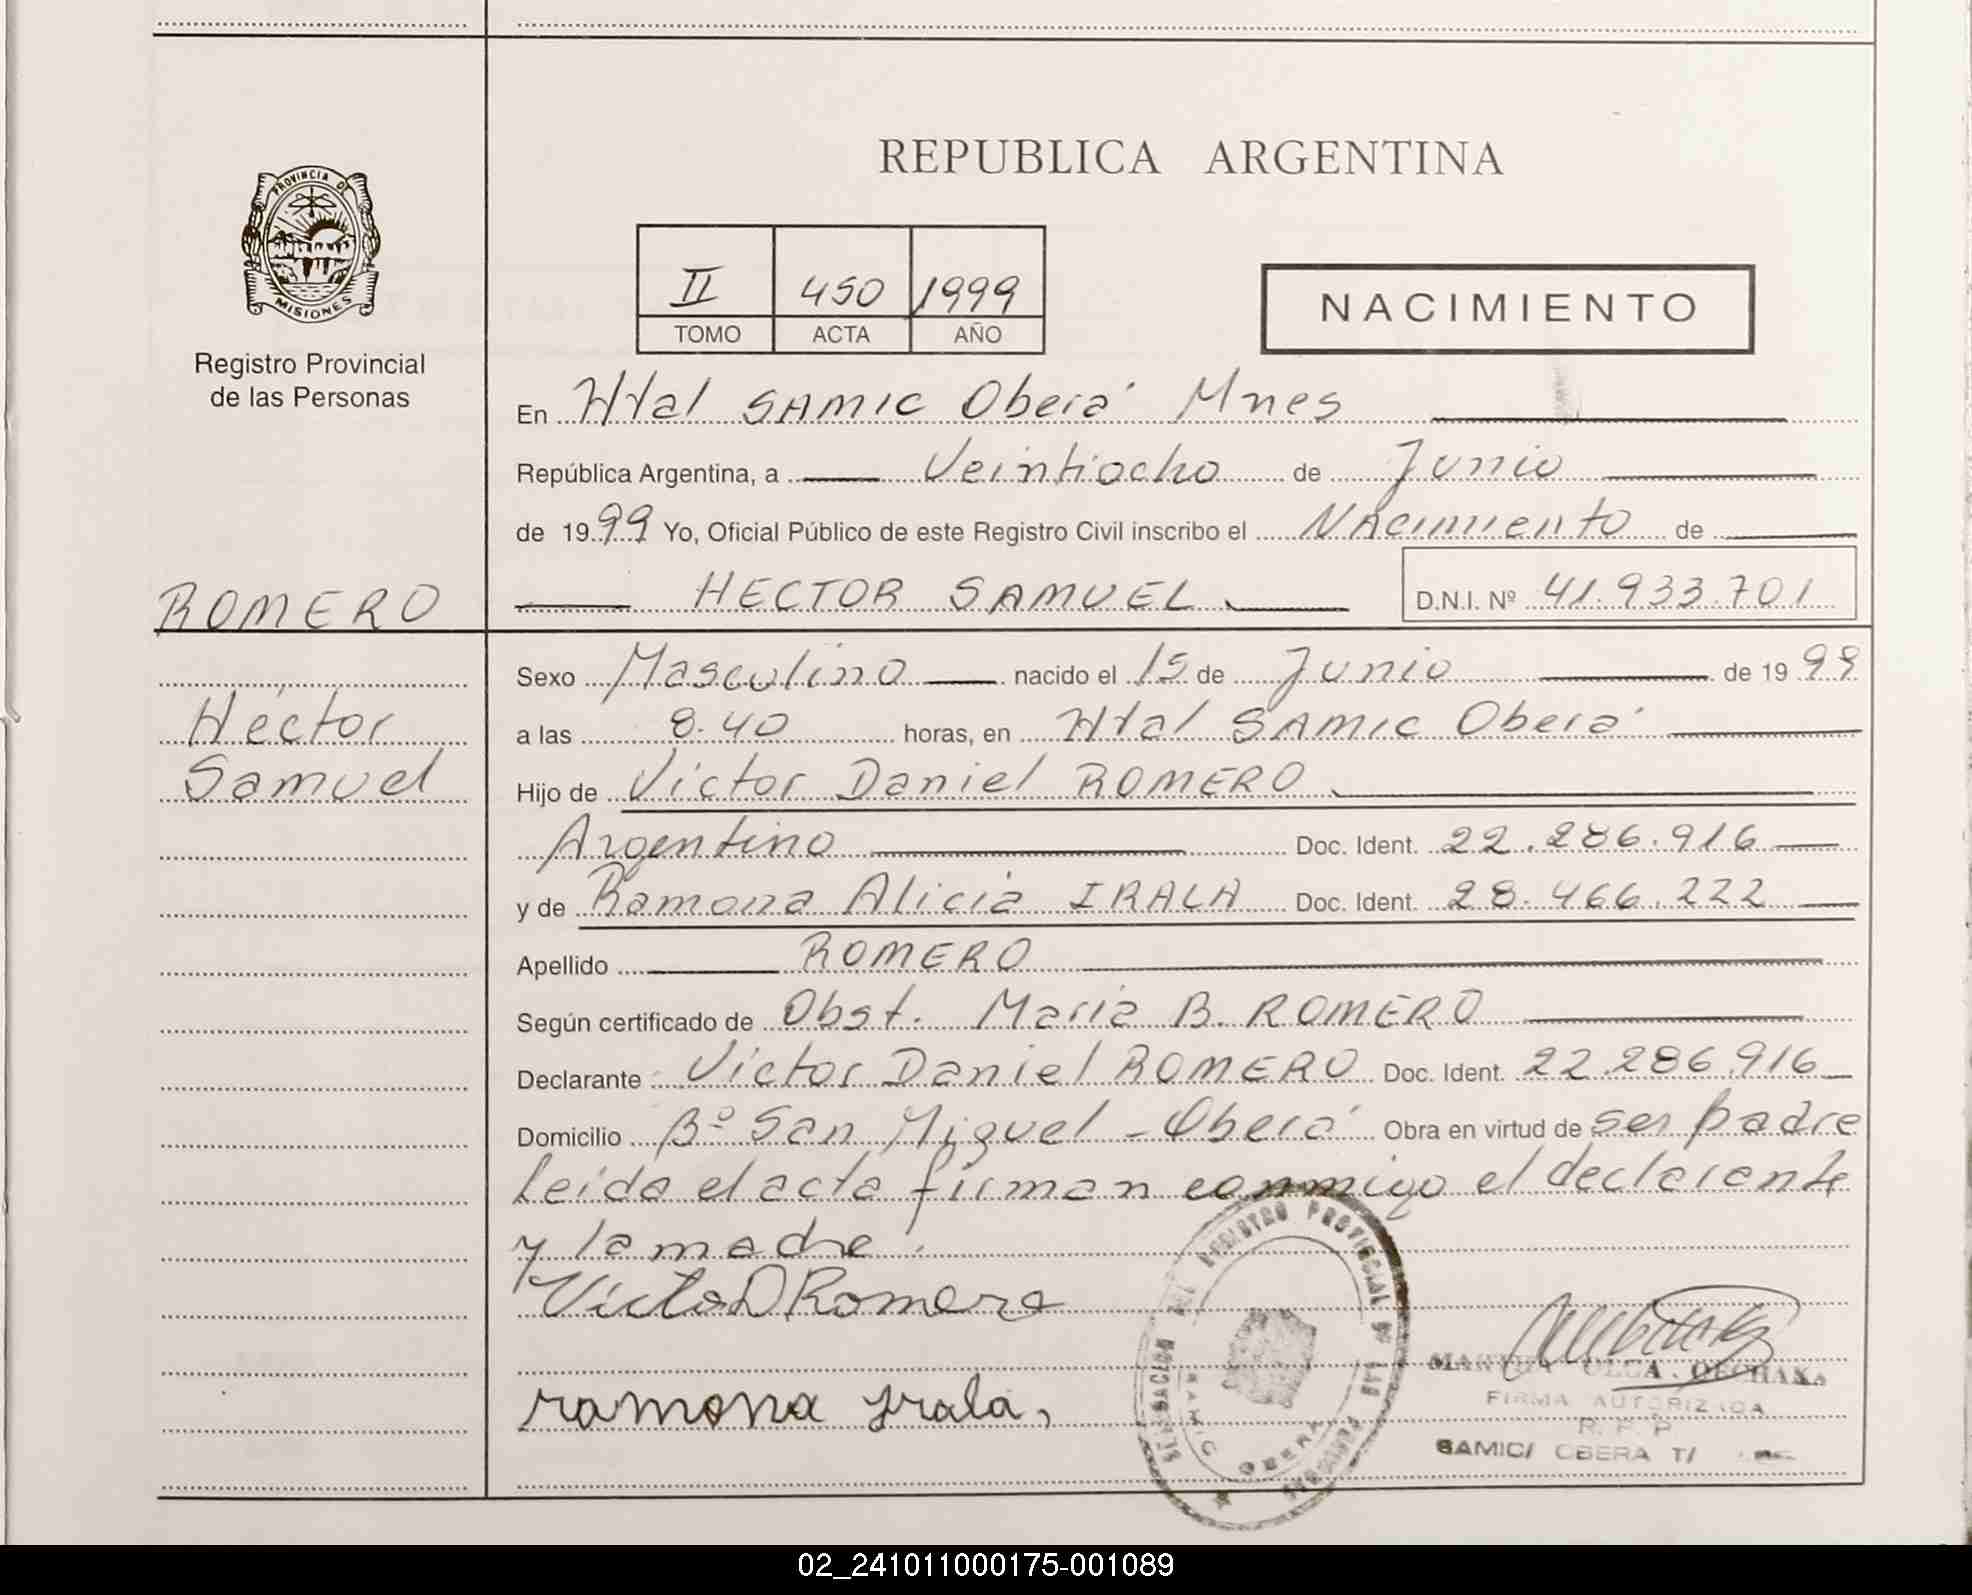 REPUBLICA ARGENTINA
PROVINCIA DE
MISIONES
Registro Provincial
de las Personas
II 450 1999
TOMO ACTA AÑO
NACIMIENTO
En Htal SAMIC Oberá Mnes
República Argentina, a Veintiocho de Junio
de 1999 Yo, Oficial Público de este Registro Civil inscribo el NAcimiento de
ROMERO
HECTOR SAMUEL
D.N.I. Nº 41.933.701
Héctor
Samuel
Sexo Masculino nacido el 15 de Junio de 1999
a las 8.40 horas, en Htal SAMIC Oberá
Hijo de Víctor Daniel ROMERO
Argentino Doc. Ident. 22.286.916
y de Ramona Alicia IRALA Doc. Ident. 28.466.222
Apellido ROMERO
Según certificado de Obst. María B. ROMERO
Declarante Víctor Daniel ROMERO Doc. Ident. 22.286.916
Domicilio Bº San Miguel - Oberá Obra en virtud de ser padre
leída el acta firman conmigo el declarante
y la madre.
Victor D Romero
ramona yrala,
REGISTRO PROVINCIAL
SAMIC
OBERA
OLGA
FIRMA AUTORIZADA
R. P. P.
SAMIC/ OBERA T/
02_241011000175-001089